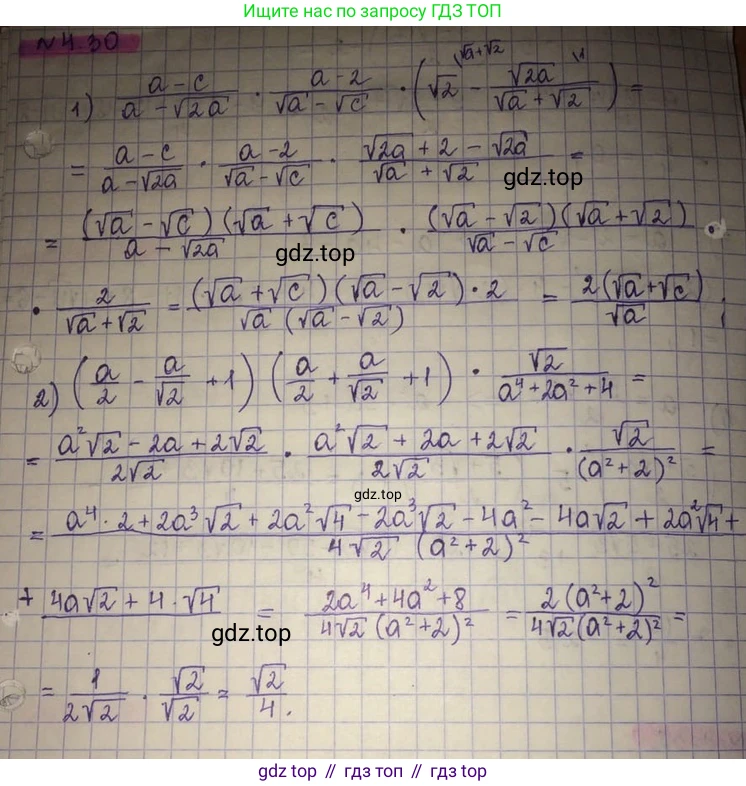 Ищите нас по запросу ГДЗ ТОП
N4.30
1) (a-c)/(a-√2a) · (a-2)/(√a-√c) · (√2 - √2a/(√a+√2)) =
= (a-c)/(a-√2a) · (a-2)/(√a-√c) · (√2a + 2 - √2a)/(√a + √2) =
gdz.top
= (√a-√c)(√a+√c)/(a-√2a) · (√a-√2)(√a+√2)/(√a-√c) ·
gdz.top
· 2/(√a+√2) = (√a+√c)(√a-√2)·2/(√a(√a-√2)) = 2(√a+√c)/√a ;
2) (a/2 - a/√2 + 1) (a/2 + a/√2 + 1) · √2/(a⁴+2a²+4) =
= (a²√2 - 2a + 2√2)/(2√2) · (a²√2 + 2a + 2√2)/(2√2) · √2/(a²+2)² =
gdz.top
= (a⁴·2 + 2a³√2 + 2a²√4 - 2a³√2 - 4a² - 4a√2 + 2a²√4 +)/(4√2 (a²+2)²)
+ 4a√2 + 4·√4 = (2a⁴+4a²+8)/(4√2(a²+2)²) = 2(a²+2)²/(4√2(a²+2)²) =
gdz.top
= 1/(2√2) · √2/√2 = √2/4.
gdz.top // гдз топ // gdz top